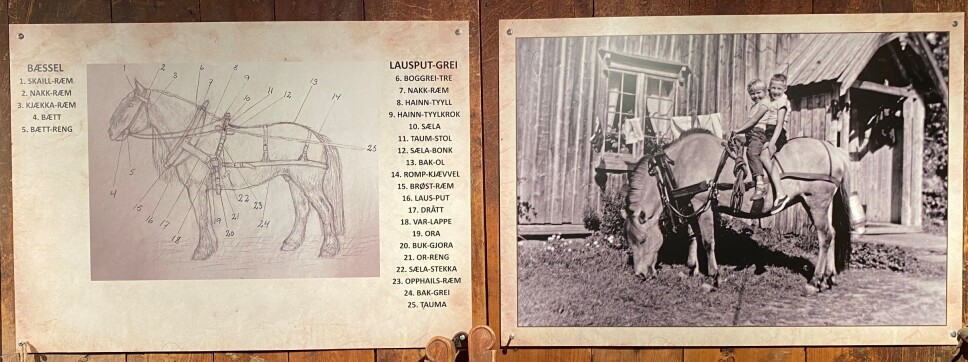 BÆSSEL
1. SKAILL-RÆM
2. NAKK-RÆM
3. KJÆKKA-RÆM
4. BÆTT
5. BÆTT-RENG
1
2
3
6
7
8
9
10
11
12
13
14
25
4
5
15
16
17
18
19
20
21
22
23
24
LAUSPUT-GREI
6. BOGGREI-TRE
7. NAKK-RÆM
8. HAINN-TYYLL
9. HAINN-TYYLKROK
10. SÆLA
11. TAUM-STOL
12. SÆLA-BONK
13. BAK-OL
14. ROMP-KJÆVVEL
15. BRØST-RÆM
16. LAUS-PUT
17. DRÅTT
18. VAR-LAPPE
19. ORA
20. BUK-GJORA
21. OR-RENG
22. SÆLA-STEKKA
23. OPPHAILS-RÆM
24. BAK-GREI
25. TAUMA